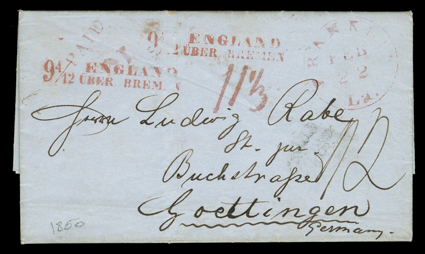 PAID
9 4/12 ENGLAND
ÜBER BREMEN
9 ENGLAND
12 ÜBER BREMEN
FEB
22
La.
11 1/3
Herrn Ludwig Rabe
St. jur.
Buchstraße
12
Goettingen
Germany.
1850